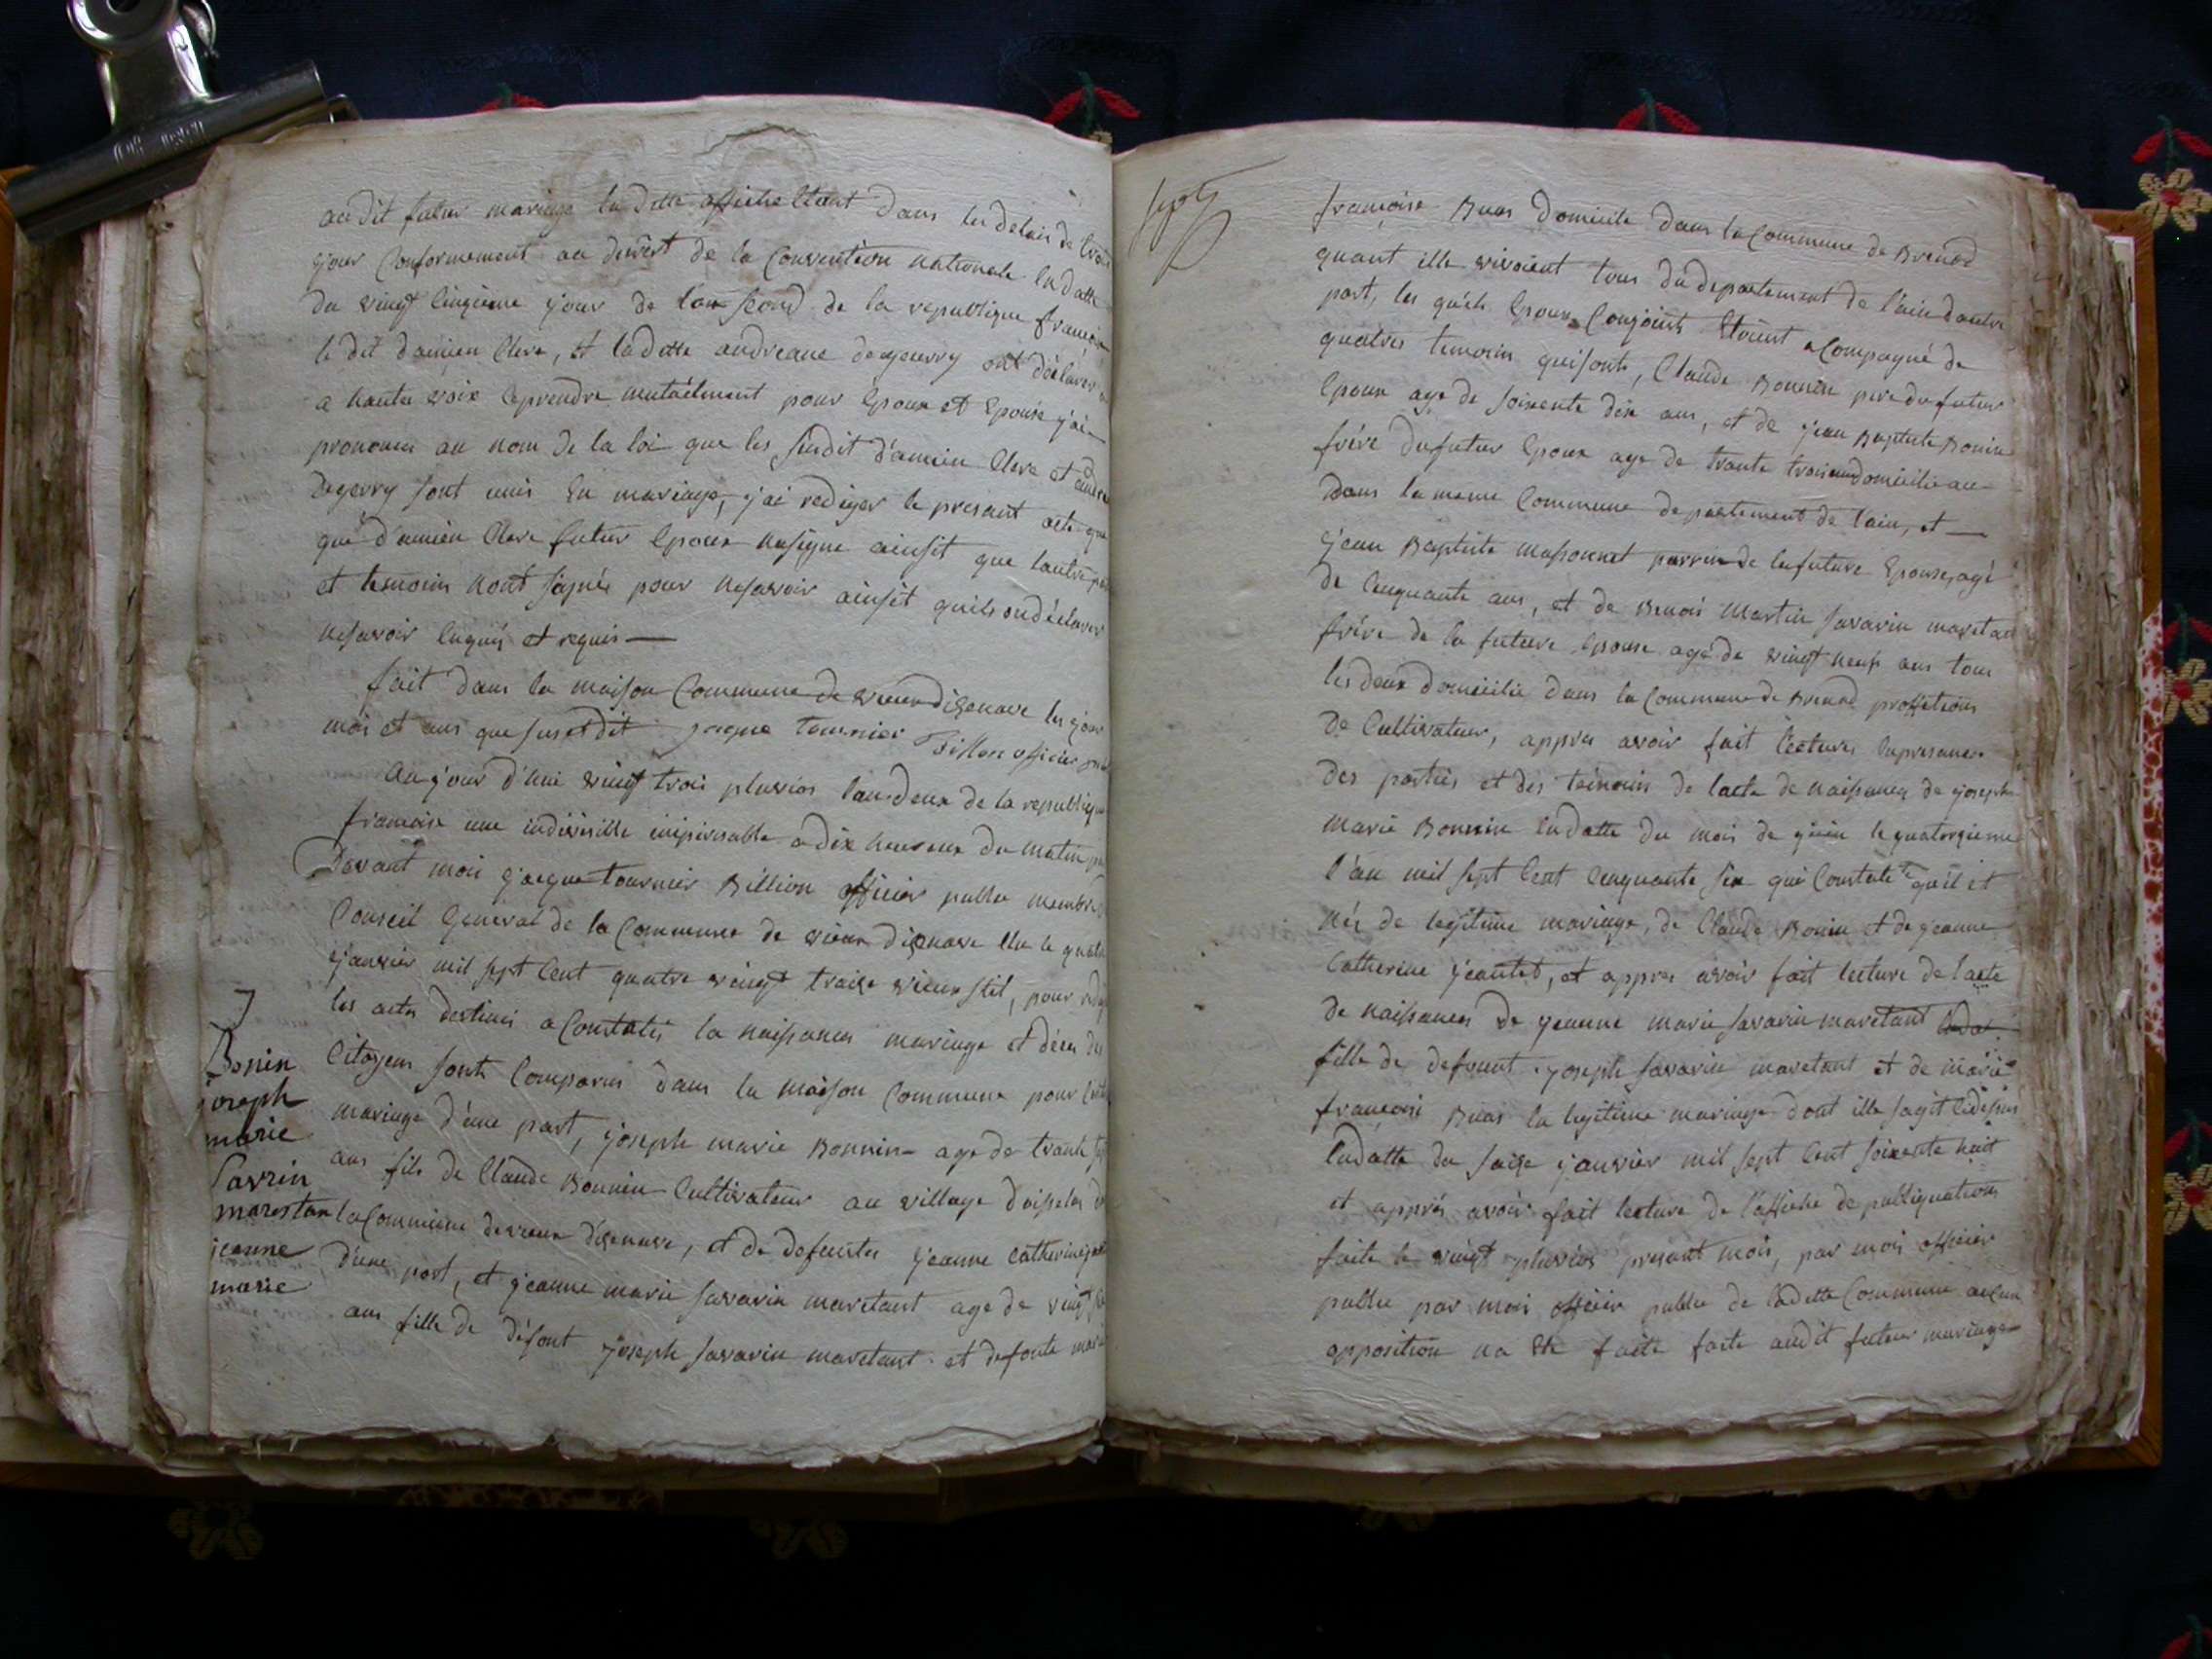 audit futur mariage la ditte affiche Etant dans les delais de trois
jour Conformement au décrest de la Convention nationale En datte
du vingt cinqieme jour de lan second de la republique francoise
le dit damien Clere, et ladette andreane degeurry ont déclarer
a haute voix se prendre mutuélment pour Epoux et Epouse j'ai
prononcer au nom de la loi que les susdit d'amien Clere et
Degerry sont unis En mariage, j'ai rediger le presant acte que
que d'amien Clere futur Epoux na signe ainsit que lautre
et temoin nont signés pour ne savoir ainsit quils on déclarer
ne savoir Enquis et requis —
fait dans la maison Commune de vieux dizenave les jour
moi et ans que susetdit jacque tournier Billion officier
Au jour d'hui vingt trois pluvios lan deux de la republique
francoise une indivisible impirisable a dix heureux du matin
Devant moi jacque tournier Billion officier public membre
Conseil General de la Commune de vieux dizenave Elu le
janvier mil sept cent quatre vingt traize vieux stil, pour
les actes destinés a Constater la naissance mariage et déces des
7
Bonin
joseph
marie
Savrin
marestan
jeanne
marie
Citoyens sonts Comparus dans la maison Commune pour
mariage d'une part, joseph marie Bonnin age de trante
ans fils de Claude Bonnin Cultivateur au village doisselas
la Commune de vieux dizenave, et de defuntes jeanne Catherine
d'une part, et jeanne marie savarin maretant age de vingt
ans fille de défont joseph savarin maretant et defonte
francoise Buas domicile dans la Commune de Brenod
quant ille vivoient tous du departement de l'ain dautre
part, les quels Epoux Conjoints Etoient acCompagné de
quatres temoins quisonts, Claude Bonnin pere du futur
Epoux age de soixente dix ans, et de jean Baptiste Bonin
frére du futur Epoux age de trante trois ans domicilie au
dans la meme Commune departement de l'ain, et —
jean Baptiste massonnet parrin de la future Epouse, agé
de Cinquante ans, et de Benoit Martin savarin maretan
frére de la future Epouse agé de vingt neufs ans tous
les deux domicilié dans la Commune de Brenod proffetions
de Cultivateur, appres avoir fait lectures En presance
des parties et des témoin de lacte de naissance de joseph
marie Bonnin En datte du mois de juin le quatorzieme
l'an mil sept Cent cenquante six qui Constate quil et
nés de legitime mariage, de Claude Bonin et de jeanne
Catherine jeantet, et appres avoir fait lecture de l'acte
de naissances de jeanne marie savarin maretant
fille de defount joseph savarin maretant et de marie
francoise Buas la legitime mariage dont ille sagit Cidessus
En datte du saize janvier mil sept Cent soixente huit
et apprés avoir fait lecture de l'affiche de publiquations
faite le vingt pluvios presant mois, par moi officier
public par moi officier public de ladette Commune aucun
opposition na Ete faite faite audit futur mariage